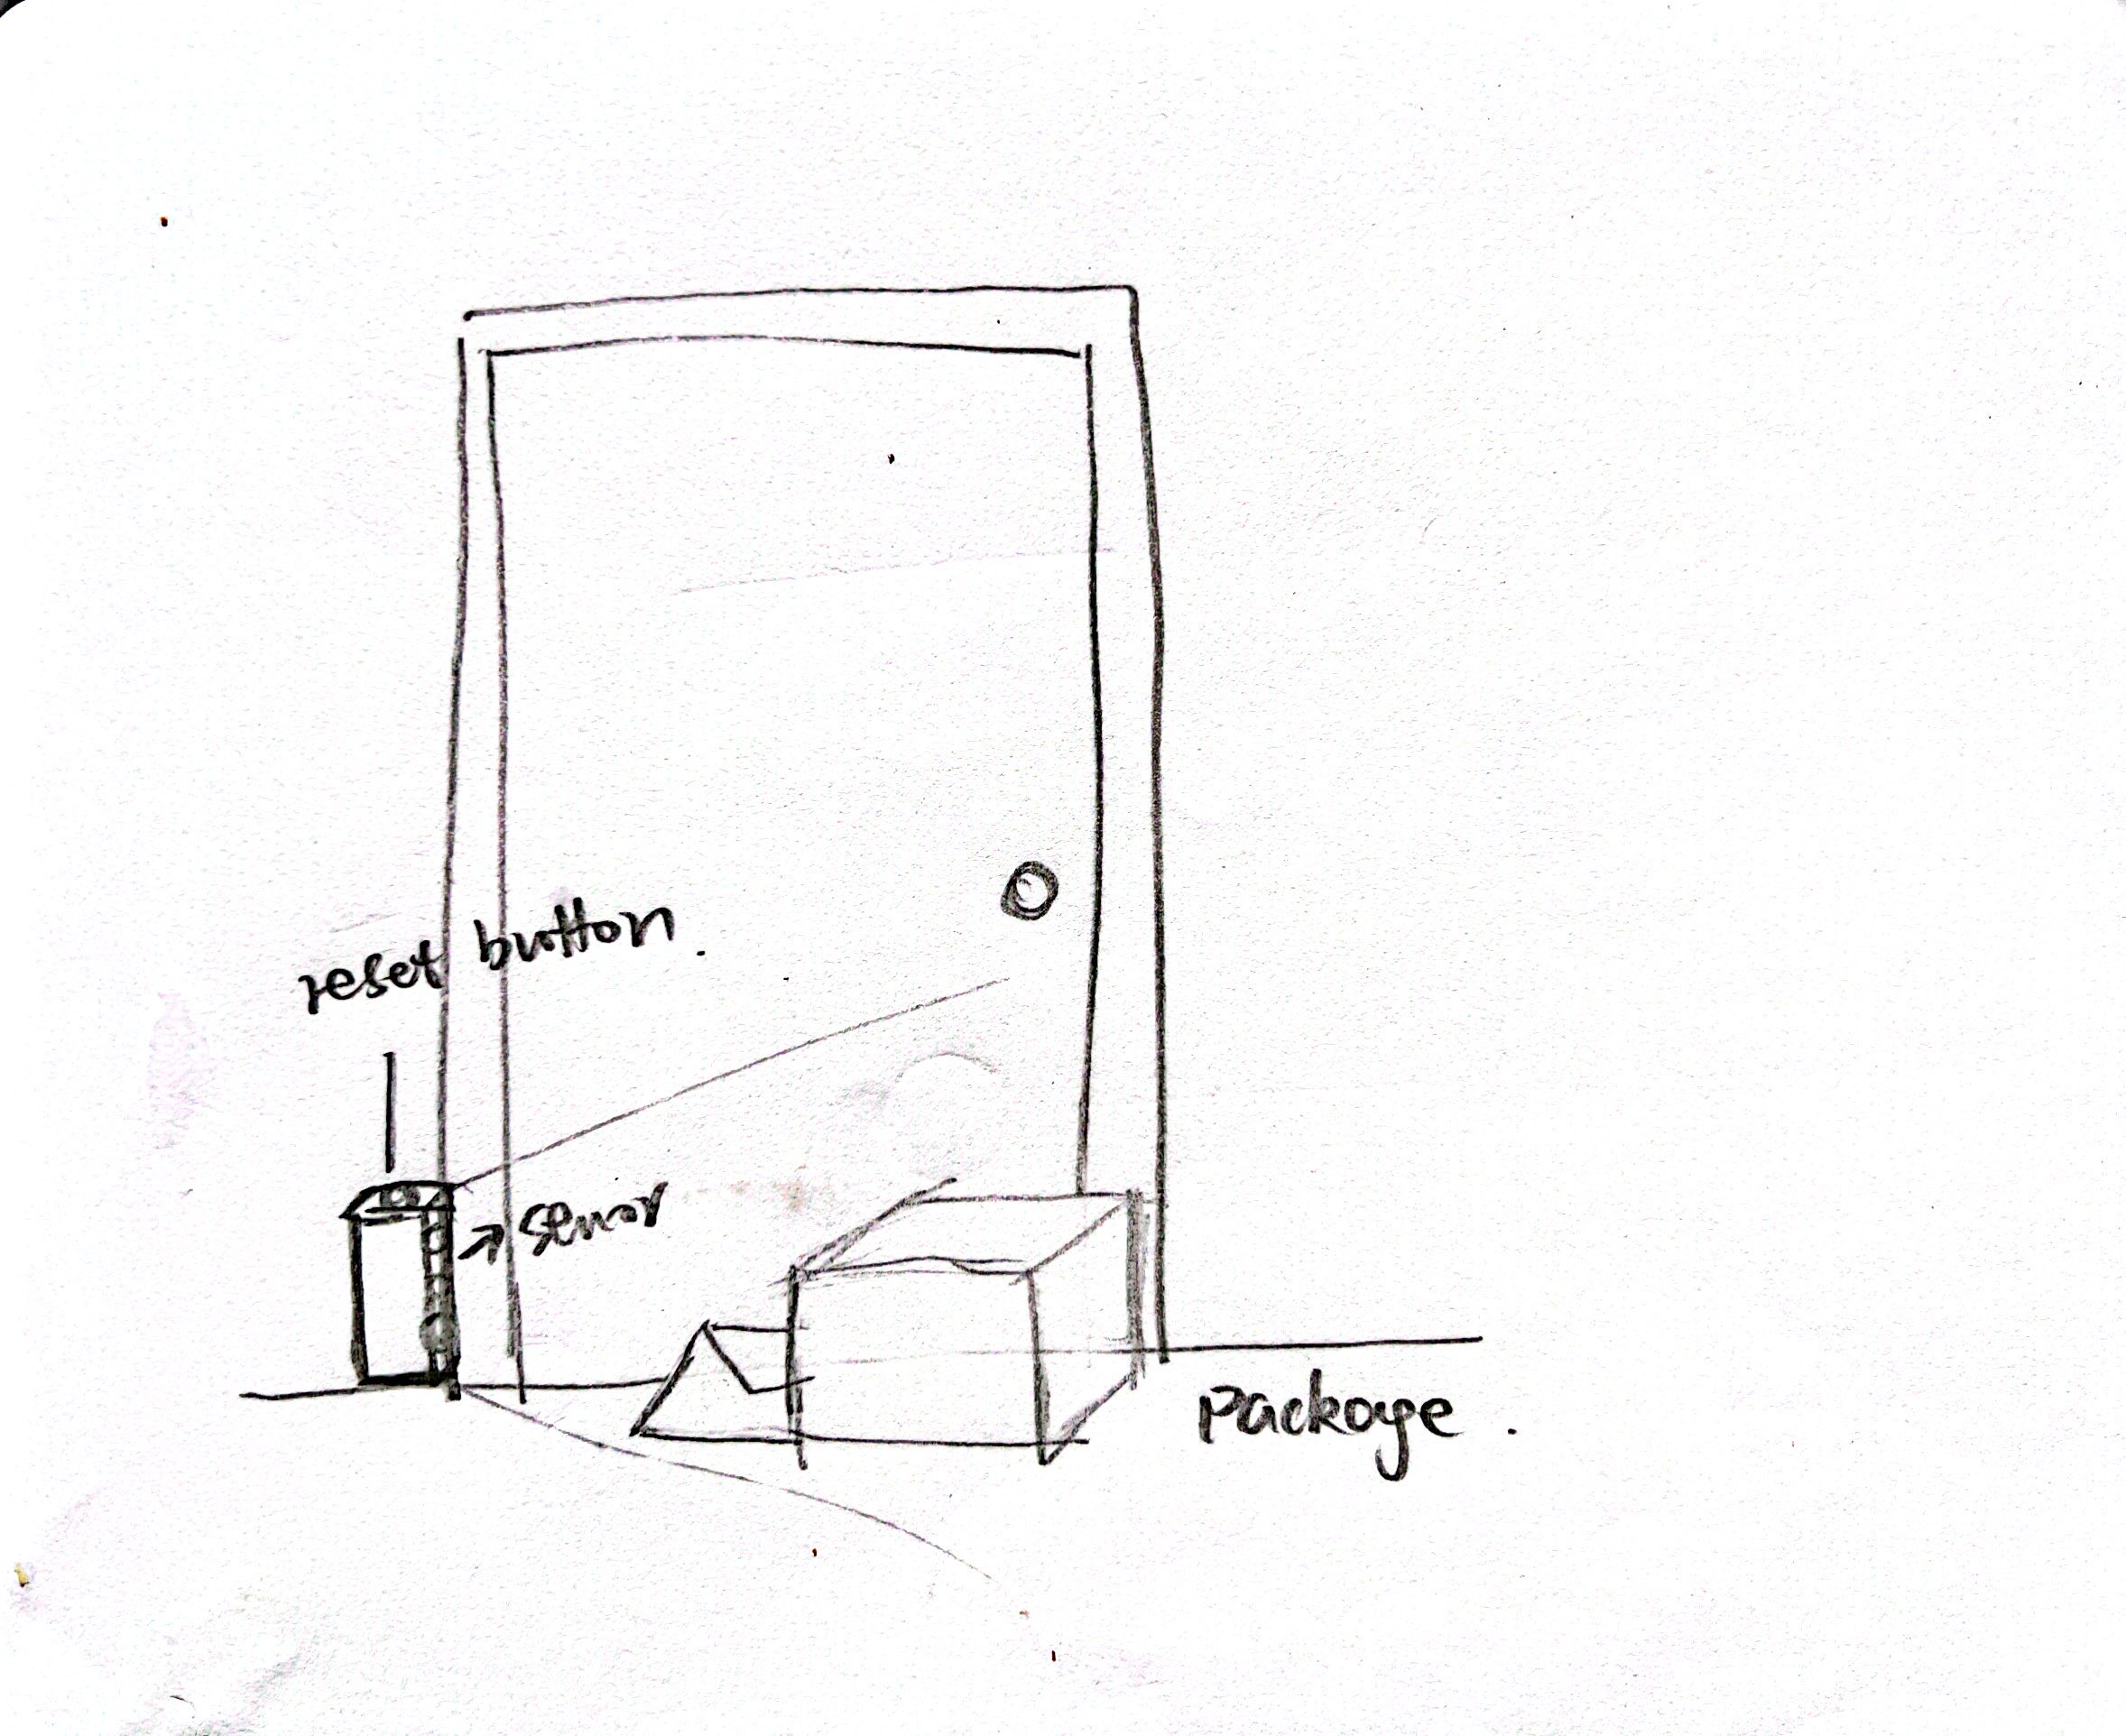 reset button.
sensor
package.